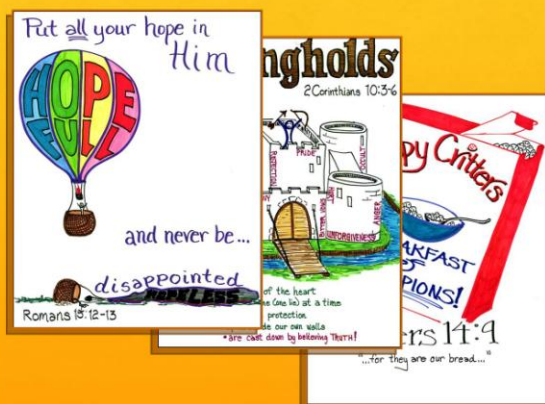 Put all your hope in
Him
HOPE
FULL
and never be...
disappointed
HOPELESS
Romans 15:12-13
ngholds
2Corinthians 10:3-6
PRIDE
REJECTION
OCCULT
ANGER
UNFORGIVENESS
of the heart
(one lie) at a time
protection
de our own walls
*are cast down by believing TRUTH!
py Critters
EAKFAST
OF
PIONS!
ers 14:9
"...for they are our bread..."